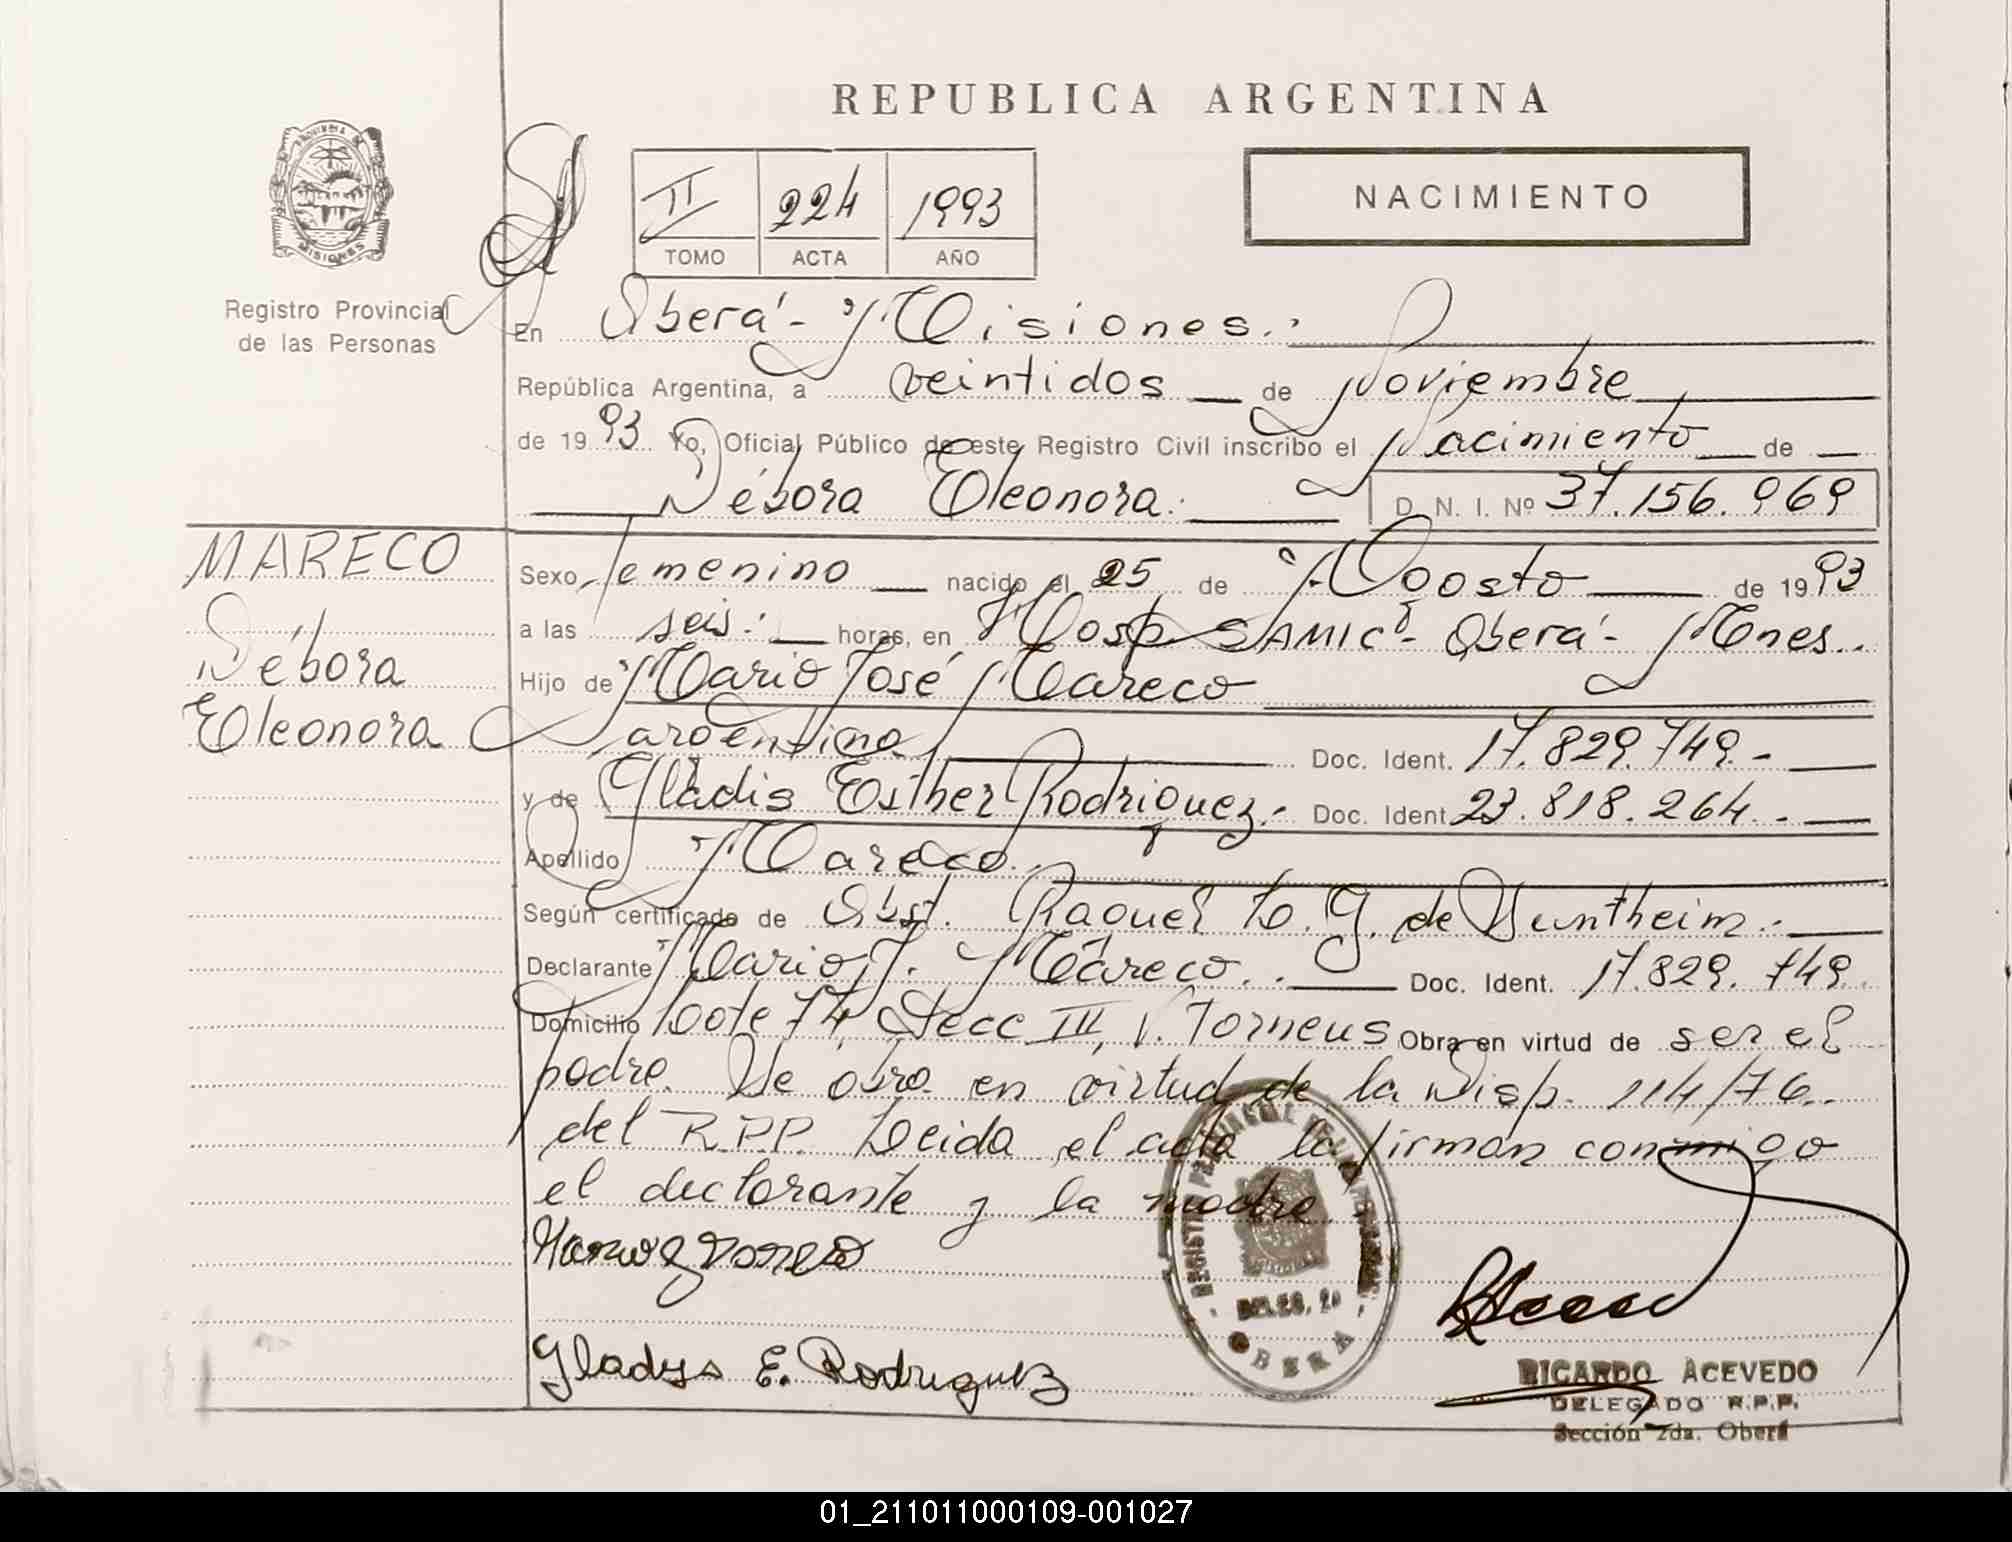 REPUBLICA ARGENTINA
PROVINCIA DE
MISIONES
Registro Provincial
de las Personas
II 224 1993
TOMO ACTA AÑO
NACIMIENTO
En Oberá - Misiones.
República Argentina, a veintidos de Noviembre
de 1993 Yo, Oficial Público de este Registro Civil inscribo el Nacimiento de
Débora Eleonora. D. N. I. Nº 37.156.969
MARECO
Débora
Eleonora
Sexo femenino nacido el 25 de Agosto de 1993
a las seis: horas, en Hosp SAMIC - Oberá - Mnes..
Hijo de Mario José Mareco
argentino Doc. Ident. 17.829.749.-
y de Gladis Esther Rodriguez.- Doc. Ident. 23.818.264.-
Apellido Mareco.
Según certificado de Obst. Raquel L. G. de Duntheim.-
Declarante Mario J. Mareco.. Doc. Ident. 17.829.749.
Domicilio Lote 74, Secc III, V. Torneus Obra en virtud de ser el
padre. Se obra en virtud de la Disp. 114/76..
del R.P.P. Leida el acta la firman conmigo
el declarante y la madre.
Gladys E. Rodriguez
OBERA
RICARDO ACEVEDO
DELEGADO R.P.P.
Sección 2da. Oberá
01_211011000109-001027